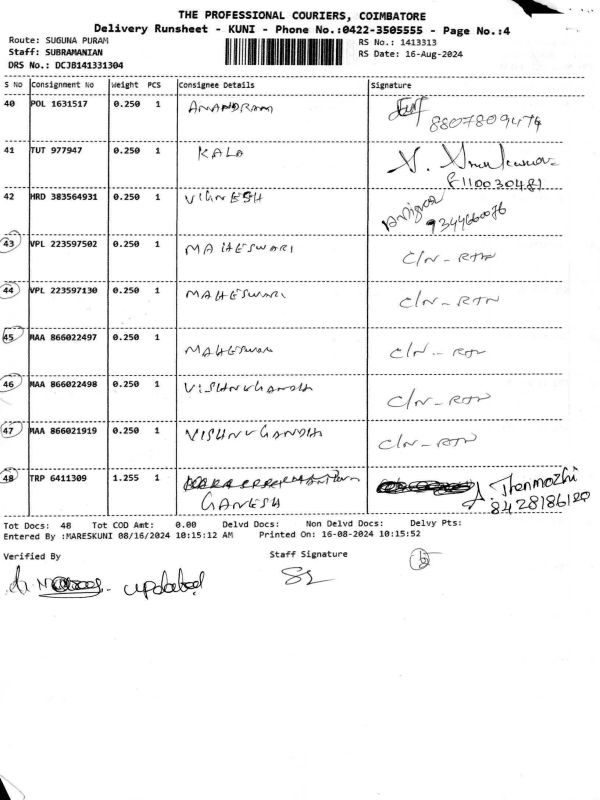 THE PROFESSIONAL COURIERS, COIMBATORE
Delivery Runsheet - KUNI - Phone No.:0422-3505555 - Page No.:4
Route: SUGUNA PURAM RS No.: 1413313
Staff: SUBRAMANIAN RS Date: 16-Aug-2024
DRS No.: DCJB141331304
S No Consignment No Weight PCS Consignee Details Signature
40 POL 1631517 0.250 1 ANANDRAM
8807809474
41 TUT 977947 0.250 1 KALA
8110030481
42 HRD 383564931 0.250 1 VIGNESH
9344660076
43 VPL 223597502 0.250 1 MAHESWARI C/N - RTN
44 VPL 223597130 0.250 1 MAHESWARI C/N - RTN
45 MAA 866022497 0.250 1 MAHESWARI C/N - RTN
46 MAA 866022498 0.250 1 VISHNUGANDH C/N - RTN
47 MAA 866021919 0.250 1 VISHNUGANDH C/N - RTN
48 TRP 6411309 1.255 1
GANESH J. Thenmozhi
8428186120
Tot Docs: 48 Tot COD Amt: 0.00 Delvd Docs: Non Delvd Docs: Delvy Pts:
Entered By :MARESKUNI 08/16/2024 10:15:12 AM Printed On: 16-08-2024 10:15:52
Verified By Staff Signature
updated